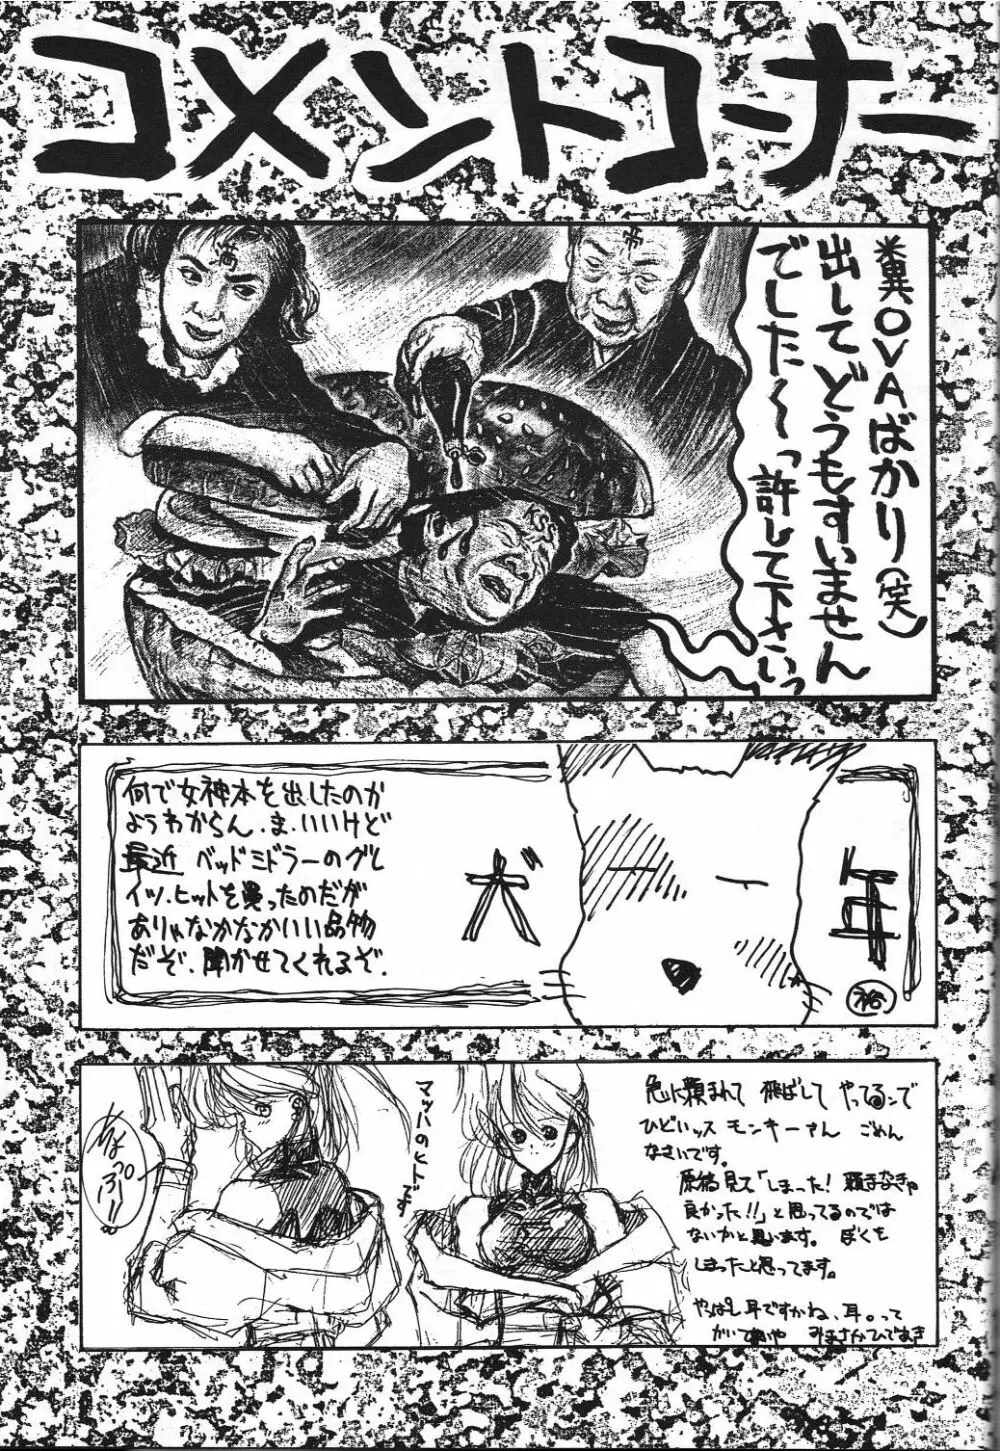 コメントコーナー
糞OVAばかり(笑)
出してどうもすいません
でした～～っ許して下さいっ
KSS
何で女神本を出したのか
ようわからん．ま、いいけど
最近 ベッドミドラーのグレ
イツ．ヒットを買ったのだが
ありゃなかなかいい品物
だぞ．聞かせてくれるぞ．
犬
耳
マッハのヒトです
急に頼まれて 飛ばして やってるンで
ひどいッス モンキーさん ごめん
なさいです。
原稿見て「しまった! 頼まなきゃ
良かった!!」と思ってるのでは
ないかと思います。 ぼくも
しまったと思ってます。
やっぱし耳ですかね、耳。って
かいてあいや みまさかひであき